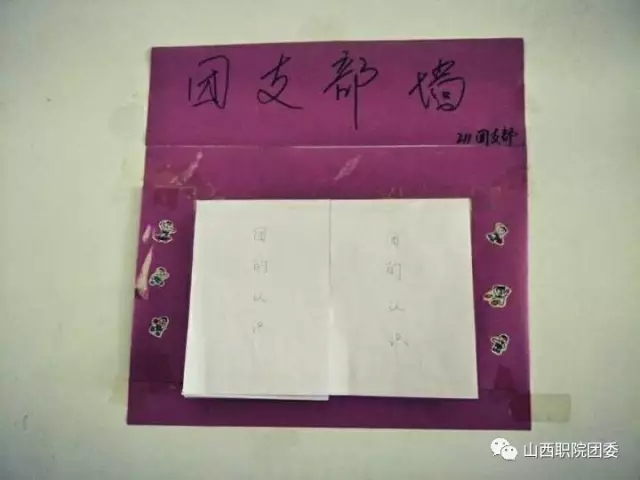 团支部墙
211团支部
团的认识
团的认识
山西职院团委